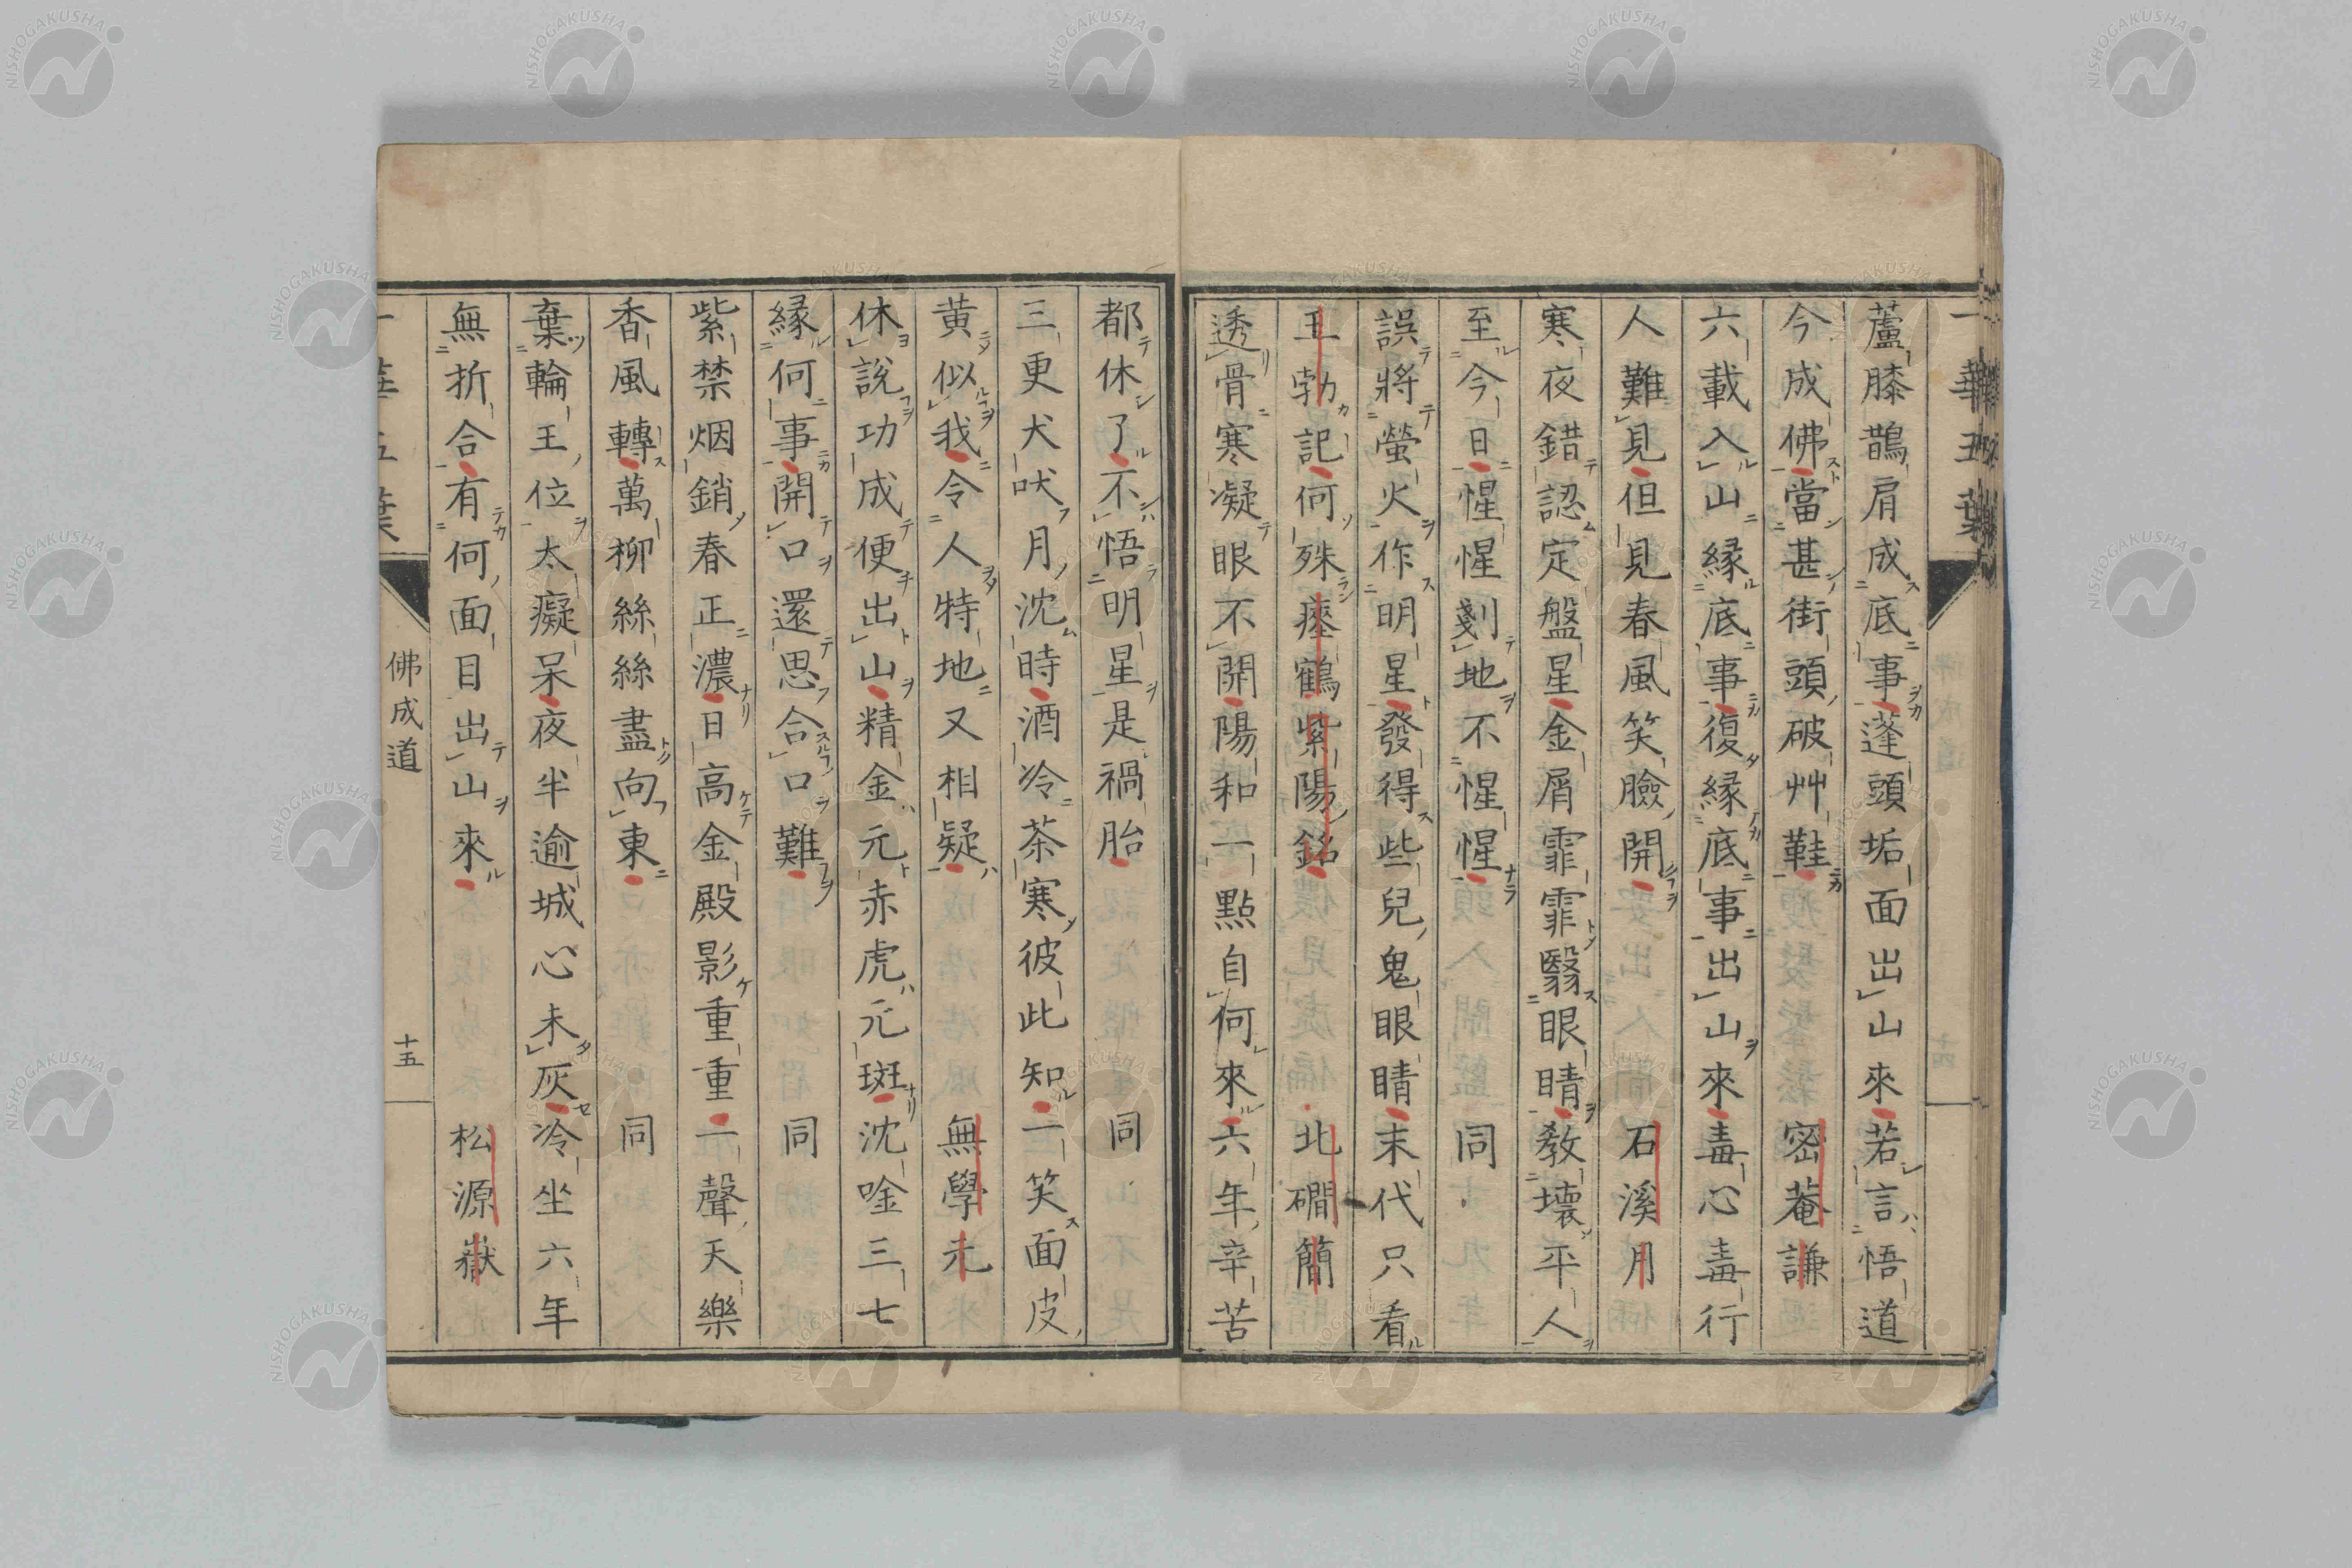 一華五葉
蘆膝鵲肩成底事蓬頭垢面出山來若言悟道
今成佛當甚街頭破艸鞋 密菴謙
六載入山緣底事復緣底事出山來毒心毒行
人難見但見春風笑臉開 石溪月
寒夜錯認定盤星金屑霏霏翳眼睛教壞平人
至今日惺惺剗地不惺惺 同
誤將螢火作明星發得些兒鬼眼睛末代只看
王勃記何殊瘞鶴紫陽銘 北磵簡
透骨寒凝眼不開陽和一點自何來六年辛苦
都休了不悟明星是禍胎 同
三更犬吠月沈時酒冷茶寒彼此知一笑面皮
黃似我令人特地又相疑 無學元
休說功成便出山精金元赤虎元斑沈唫三七
緣何事開口還思合口難 同
紫禁烟銷春正濃日高金殿影重重一聲天樂
香風轉萬柳絲絲盡向東 同
棄輪王位太癡呆夜半逾城心未灰冷坐六年
無折合有何面目出山來 松源嶽
一華五葉 佛成道 十五
NISHOGAKUSHA